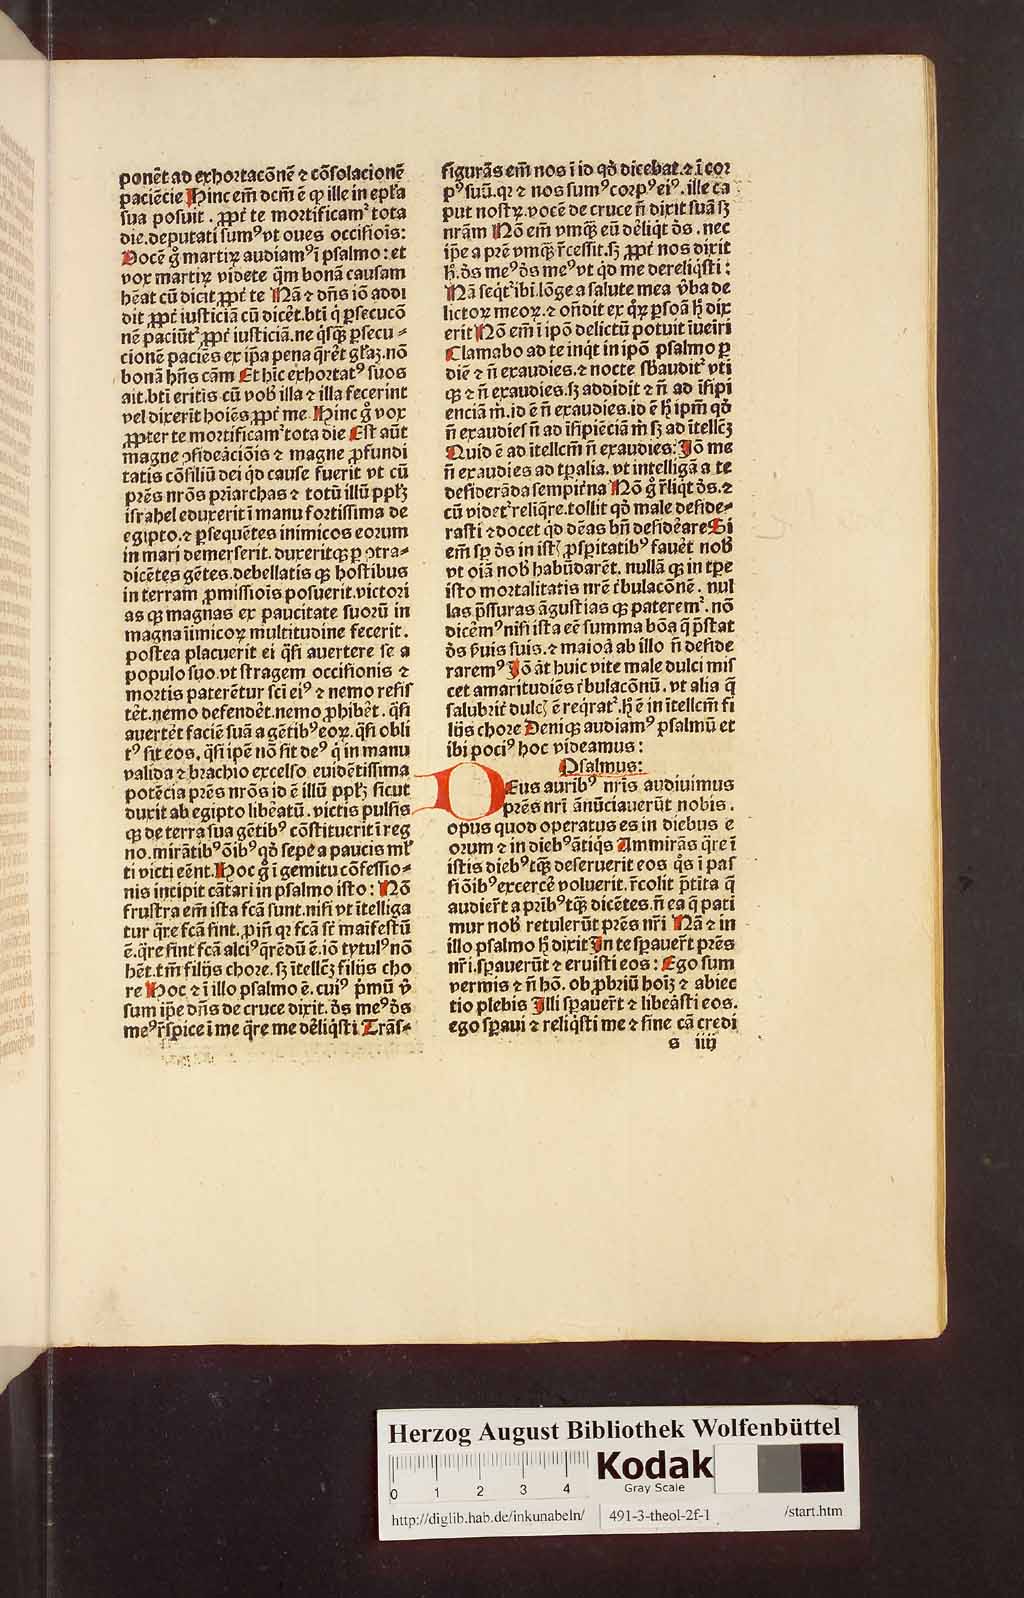 ponēt ad exhortacōnē ⁊ cōsolacionē
paciēcie Hinc em̄ dcm̄ ē ꝙ ille in epl̄a
sua posuit . ꝓpt̄ te mortificam² tota
die.deputati sumꝰ vt oues occisiois:
Vocē gͦ martiꝝ audiamꝰ ī psalmo: et
vox martiꝝ videte q̄m bonā causam
hēat cū dicit ꝓpt̄ te Nā ⁊ dn̄s iō addi
dit ꝓpt̄ iusticiā cū dicēt.bti q̇ ꝑsecucō
nē paciūt² ꝓpt̄ iusticiā.ne q̇sꝗ̄ ꝑsecu-
cionē paciēs ex ip̄a pena q̄rēt gl̄aꝫ.nō
bonā hn̄s cām Et hīc exhortatꝰ suos
ait.bti eritis cū vob̄ illa ⁊ illa fecerint
vel dixerīt hoiēs ꝓpt̄ me Hinc gͦ vox
ꝓpter te mortificam² tota die Est aūt
magne ꝯfideāciōis ⁊ magne ꝓfundi
tatis cōsiliū dei q̇d cause fuerit vt cū
prēs nrōs pr̄iarchas ⁊ totū illū ppl̄ꝫ
israhel eduxerit ī manu fortissima de
egipto.⁊ ꝑsequētes inimicos eorum
in mari demerserit. duxeritqꝫ ꝑ ꝯtra-
dicētes gētes.debellatis qꝫ hostibus
in terram ꝓmissiois posuerit.victori
as qꝫ magnas ex paucitate suorū in
magna īimicoꝝ multitudine fecerit.
postea placuerit ei q̄si auertere se a
populo suo.vt stragem occisionis ⁊
mortis paterētur sci eiꝰ ⁊ nemo resis
tēt.nemo defendēt.nemo ꝓhibēt. q̄si
auertēt faciē suā a gētibꝰ eoꝝ. q̄si obli
tꝰ sit eos. q̄si ipē nō sit deꝰ q̇ in manu
valida ⁊ brachio excelso euidētissima
potēcia prēs nrōs id ē illū ppl̄ꝫ sicut
duxit ab egipto libeātū.victis pulsis
qꝫ de terra sua gētibꝰ cōstituerit ī reg
no.mirātibꝰ ōibꝰ qd̄ sepe a paucis ml̄
ti victi eēnt Hoc gͦ ī gemitu cōfessio-
nis incipit cātari in psalmo isto: Nō
frustra em̄ ista fcā sunt.nisi vt ītelliga
tur q̄re fcā sint. ꝑin̄ qꝛ fcā st̄ maifestū
ē.q̄re sint fcā alciꝰ q̄redū ē.iō tytulꝰ nō
hēt.tm̄ filijs chore.sꝫ ītellcꝫ filijs cho
re Hoc ⁊ ī illo psalmo ē. cuiꝰ p̄mū v̄
sum ip̄e dn̄s de cruce dixit. ds̄ meꝰ ds̄
meꝰ r̄spice ī me q̄re me dēliq̇sti Trās-
figurās em̄ nos ī id qd̄ dicebat.⁊ ī cor
pꝰ suū.qꝛ ⁊ nos sumꝰ corpꝰ eiꝰ. ille ca
put nostꝝ.vocē de cruce n̄ dixit suā sꝫ
nrām Nō em̄ vmqꝫ eū dēliqt ds̄. nec
ip̄e a prē vmqꝫ r̄cessit.sꝫ ꝓpt̄ nos dixit
h̄. ds̄ meꝰ ds̄ meꝰ vt qd me dereliq̇sti:
Nā seqt̄² ibi.lōge a salute mea v̄ba de
lictoꝝ meoꝝ.⁊ on̄dit ex q̇ꝝ ꝑsoā h̄ dix
erit Nō em̄ ī ipō delictū potuit īueiri
Clamabo ad te inq̇t in ipō psalmo ꝑ
diē ⁊ n̄ exaudies.⁊ nocte sb̄audit² vti
qꝫ ⁊ n̄ exaudies.sꝫ addidit ⁊ n̄ ad īsipi
enciā m̄.id ē n̄ exaudies.id ē h̄ ipm̄ qd̄
n̄ exaudies n̄ ad īsipiēciā m̄ sꝫ ad ītellcꝫ
Quid ē ad ītellcm̄ n̄ exaudies: Iō me
n̄ exaudies ad tꝑalia. vt intelligā a te
desiderāda sempit̄na Nō gͦ r̄liq̇t ds̄.⁊
cū videt² reliq̄re.tollit qd̄ male deside-
rasti ⁊ docet q̇d dēas bn̄ desidēare Si
em̄ sꝑ ds̄ in istꝭ ꝓspitatibꝰ fauēt nob̄
vt oiā nob̄ habūdarēt. nullā qꝫ in tꝑe
isto mortalitatis nrē t̄bulacōnē. nul
las p̄ssuras āgustias qꝫ paterem². nō
dicēmꝰ nisi ista eē summa bōa q̄ p̄stat
ds̄ s̄uis suis.⁊ maioā ab illo n̄ deside
raremꝰ Iō āt huic vite male dulci mis
cet amaritudiēs t̄bulacōnū. vt alia q̄
salubrit̄ dulcꝭ ē reqrat². h̄ ē in ītellcm̄ fi
lijs chore Deniqꝫ audiamꝰ psalmū et
ibi pociꝰ hoc videamus:
Psalmus:
DEus auribꝰ nr̄is audiuimus
prēs nrī ānūciauerūt nobis.
opus quod operatus es in diebus e
orum ⁊ in diebꝰ ātiq̇s Ammirās q̄re ī
istis diebꝰ tꝗ̄ deseruerit eos q̇s ī pas
si ōibꝰ excercē voluerit. r̄colit p̄tita q̄
audier̄t a prībꝰ tꝗ̄ dicētes.n̄ ea q̄ pati
mur nob̄ retulerūt prēs nr̄i Nā ⁊ in
illo psalmo h̄ dixit In te sꝑauer̄t prēs
nr̄i.sꝑauerūt ⁊ eruisti eos: Ego sum
vermis ⁊ n̄ hō. ob ꝓbriū hoiꝫ ⁊ abiec
tio plebis Illi sꝑauer̄t ⁊ libeāsti eos.
ego sꝑaui ⁊ reliq̇sti me ⁊ sine cā credi
s iiij
Herzog August Bibliothek Wolfenbüttel
0 1 2 3 4
Kodak
Gray Scale
http://diglib.hab.de/inkunabeln/ 491-3-theol-2f-1 /start.htm